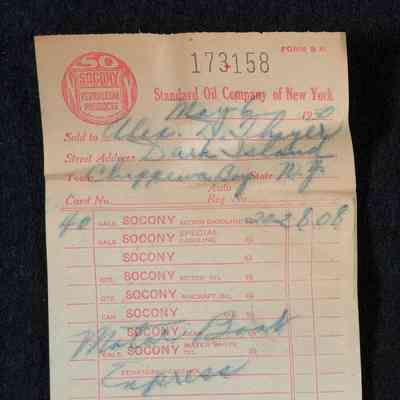 FORM S 31
SO
SOCONY
PETROLEUM
PRODUCTS
173158
Standard Oil Company of New York
May 6 19
Sold to Alex. D. Thayer
Street Address Dark Island
Town Chippewa Bay State N.Y.
Card No. Auto Reg No.
40 GALS. SOCONY MOTOR GASOLINE @ 20.2 8.08
GALS. SOCONY SPECIAL GASOLINE @
SOCONY @
QTS. SOCONY MOTOR OIL @
QTS. SOCONY AIRCRAFT OIL @
CAN SOCONY @
SOCONY
GALS. SOCONY WATER WHITE OIL @
Motor Boat
Express